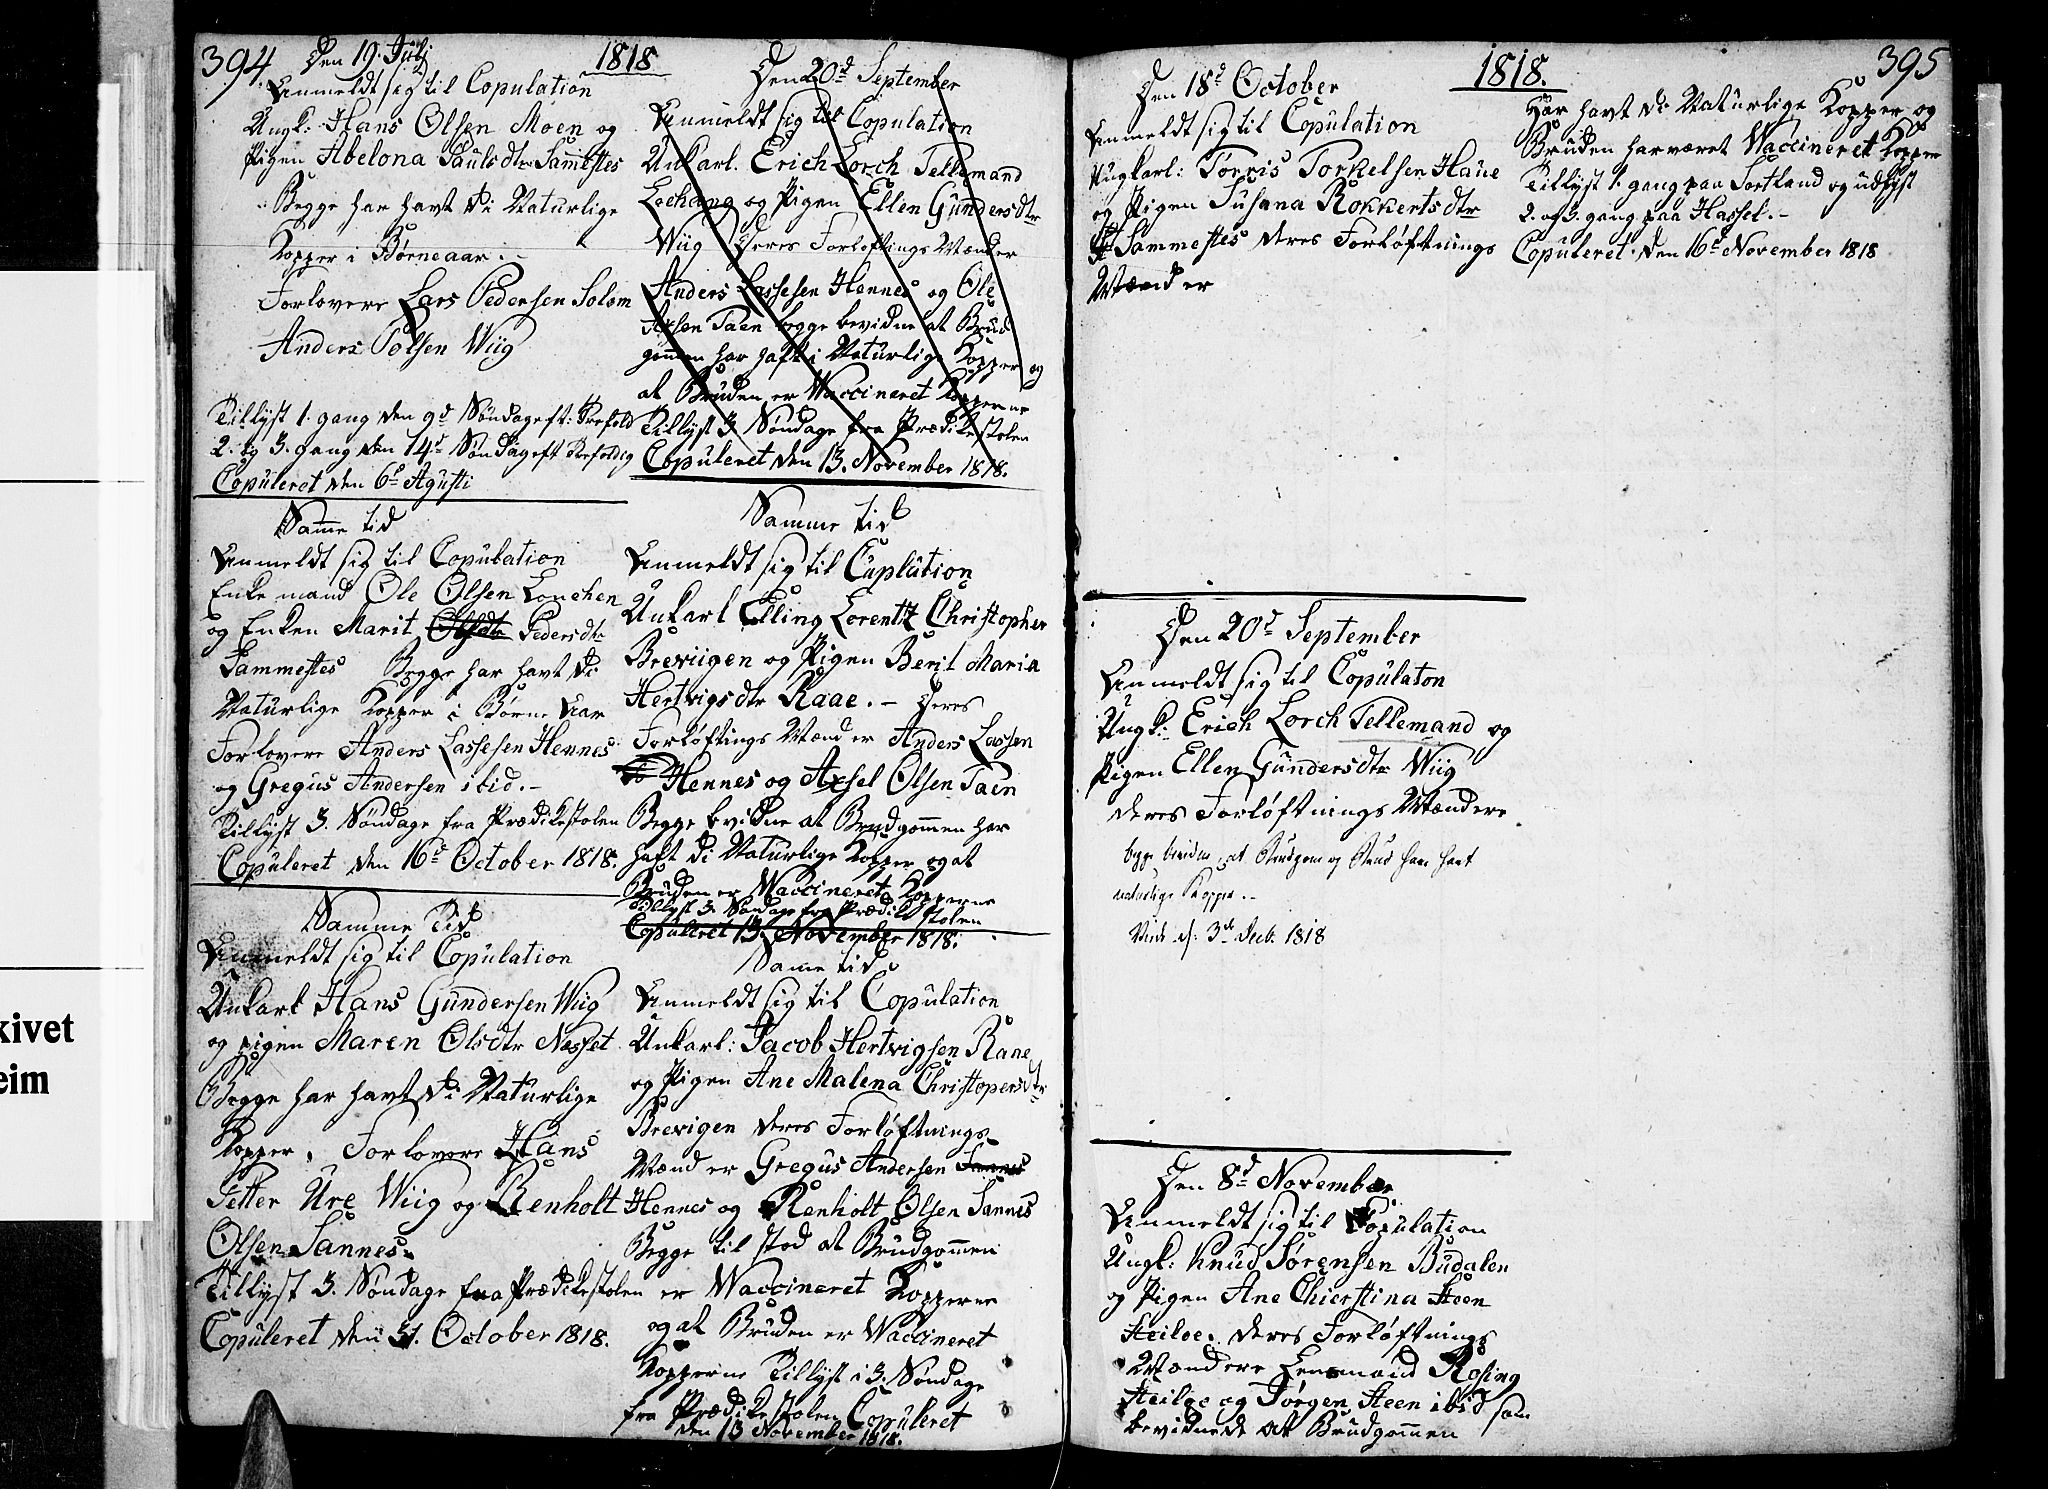 394
1818
Den 19. Julj
Anmeldt sig til Copulation
Ungk: Hans Olsen Moen og
Pigen Abelona Paulsdtr Sammestes
Begge har havt di Naturlige
Kopper i Børneaar.-
Forlovere Lars Pedersen Solom
Anders Polsen Wiig
Tillyst 1. gang den 9d Søndag eft: Trefold
2. og 3. gang den 14d Søndag eft Trefoldig
Copuleret den 6d Agusti
Samme tid
Anmeldt sig til Copulation
Enke mand Ole Olsen Lonchen
og Enken Marit Olsdtr Pedersdtr
Sammestes Begge har havt di
Naturlige Kopper i Børne Aar
Forlovere Anders Lassesen Hennes
og Gregus Andersen ibid.-
Tillyst 3. Søndage fra Prædikestolen
Copuleret den 16d October 1818.
Samme Tid
Anmeldt sig til Copulation
Unkarl Hans Gundersen Wiig
og pigen Maren Olsdtr Næsset
Begge har havt di Naturlige
Kopper. Forlovere Hans
Petter Ure Wiig og Renholt
Olsen Sannes.
Tillyst 3. Søndage fra Prædikestolen
Copuleret den 31. October 1818.
Den 20d September
Anmeldt sig til Copulation
Unkarl. Erich Lorch Tellemand
Lochang og Pigen Ellen Gundersdtr
Wiig Deres Forløftings Mænd er
Anders Lassesen Hennes og Ole
Axsen Taen begge bevidne at Brud
gommen har haft i Naturlige Kopper og
at Bruden er Waccineret Kopperne
Tillyst 3 Søndage fra Prædikestolen
Copuleret den 13. November 1818.
Samme tid
Anmeldt sig til Cuplution
Unkarl Elling Lorentz Christopher
Breviigen og Pigen Berit Maria
Hertvigsdtr Raae. - Deres
Forløftings Mænd er Anders Lassen
Hennes og Axsel Olsen Taen
Begge bevidne at Brudgommen har
haft di Naturlige Kopper og at
Bruden er Waccineret Kopperne
Tillyst 3. Søndage fra Prædikestolen
Copuleret 13. November 1818.
Same tid
Anmeldt sig til Copulation
Unkarl: Jacob Hertvigsen Raae
og Pigen Ane Malena Christopersdtr
Brevigen deres Forløftnings
Mænd er Gregus Andersen Sannes
Hennes og Renholt Olsen Sannes
Begge til stod at Brudgommen
er Waccineret Kopperne
og at Bruden er Waccineret
Kopperne Tillyst i 3. Søndage
fra Prædikestolen Copuleret
den 13 November 1818.
1818.
395
Den 18d October
Anmeldt sig til Copulation
Ungkarl: Torris Torkelsen Haue
og Pigen Susana Rokkertsdtr
Sammestes deres Forløftnings
Mænd er
Den 20d September
Anmeldt sig til Copulaton
Ungk: Erich Lorch Tellemand og
Pigen Ellen Gundersdtr Wiig
deres Forløftnings Mændere
begge bevidne, at Brudgom og Brud have havt
naturlige Kopper.-
Viede d: 3de Decb. 1818
Den 8d November
Anmeldt sig til Copulation
Ungk: Knud Sørensen Budalen
og Pigen Ane Chierstina Steen
Steiloe. deres Forløftnings
Mændere Lensmand Rosing
Steiloe og Jørgen Steen ibid som
bevidnede at Brudgommen
Har havt di Naturlige Kopper og
Bruden har været Waccineret Kopper
Tillyst 1. gang paa Sortland og udlyst
2. og 3. gang paa Hassel.-
Copuleret den 16d November 1818
kivet
eim